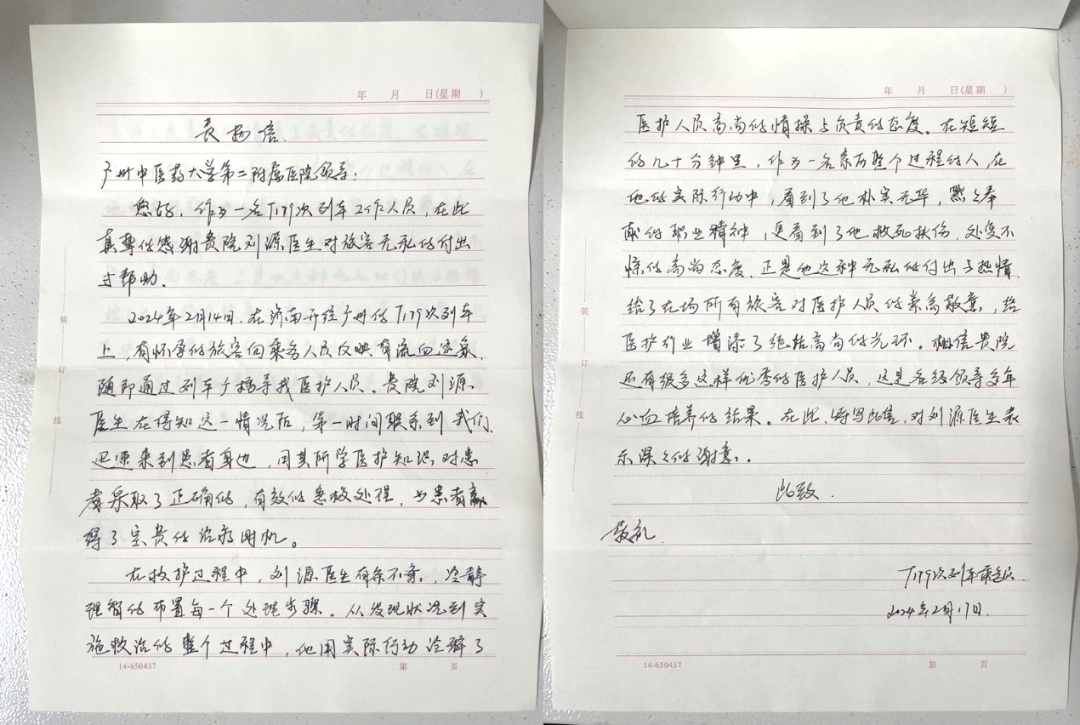 年 月 日(星期 )
表扬信
广州中医药大学第二附属医院领导:
您好,作为一名T179次列车工作人员,在此
真挚的感谢贵院刘源医生对旅客无私的付出
与帮助.
2024年2月14日,在济南开往广州的T179次列车
上,有怀孕的旅客向乘务人员反映有流血迹象,
随即通过列车广播寻找医护人员。贵院刘源
医生在得知这一情况后,第一时间联系到我们,
迅速来到患者身边,用其所学医护知识,对患
者采取了正确的,有效的急救处理,为患者赢
得了宝贵的治疗时机。
在救护过程中,刘源医生有条不紊,冷静
理智的布置每一个处理步骤。从发现状况到实
施救治的整个过程中,他用实际行动诠释了
装 订 线
14-650437 第 页
年 月 日(星期 )
医护人员高尚的情操与负责的态度。在短短
的几十分钟里,作为一名亲历整个过程的人,在
他的实际行动中,看到了他朴实无华,默默奉
献的职业精神,更看到了他救死扶伤,处变不
惊的高尚态度.正是他这种无私的付出与热情
给了在场所有旅客对医护人员的崇高敬意,给
医护行业增添了绝格高尚的光环。相信贵院
还有很多这样优秀的医护人员,这是各级领导多年
心血培养的结果。在此,特写此信,对刘源医生表
示深深的谢意。
此致
敬礼
T179次列车乘务员
2024年2月17日.
装 订 线
14-650437 第 页